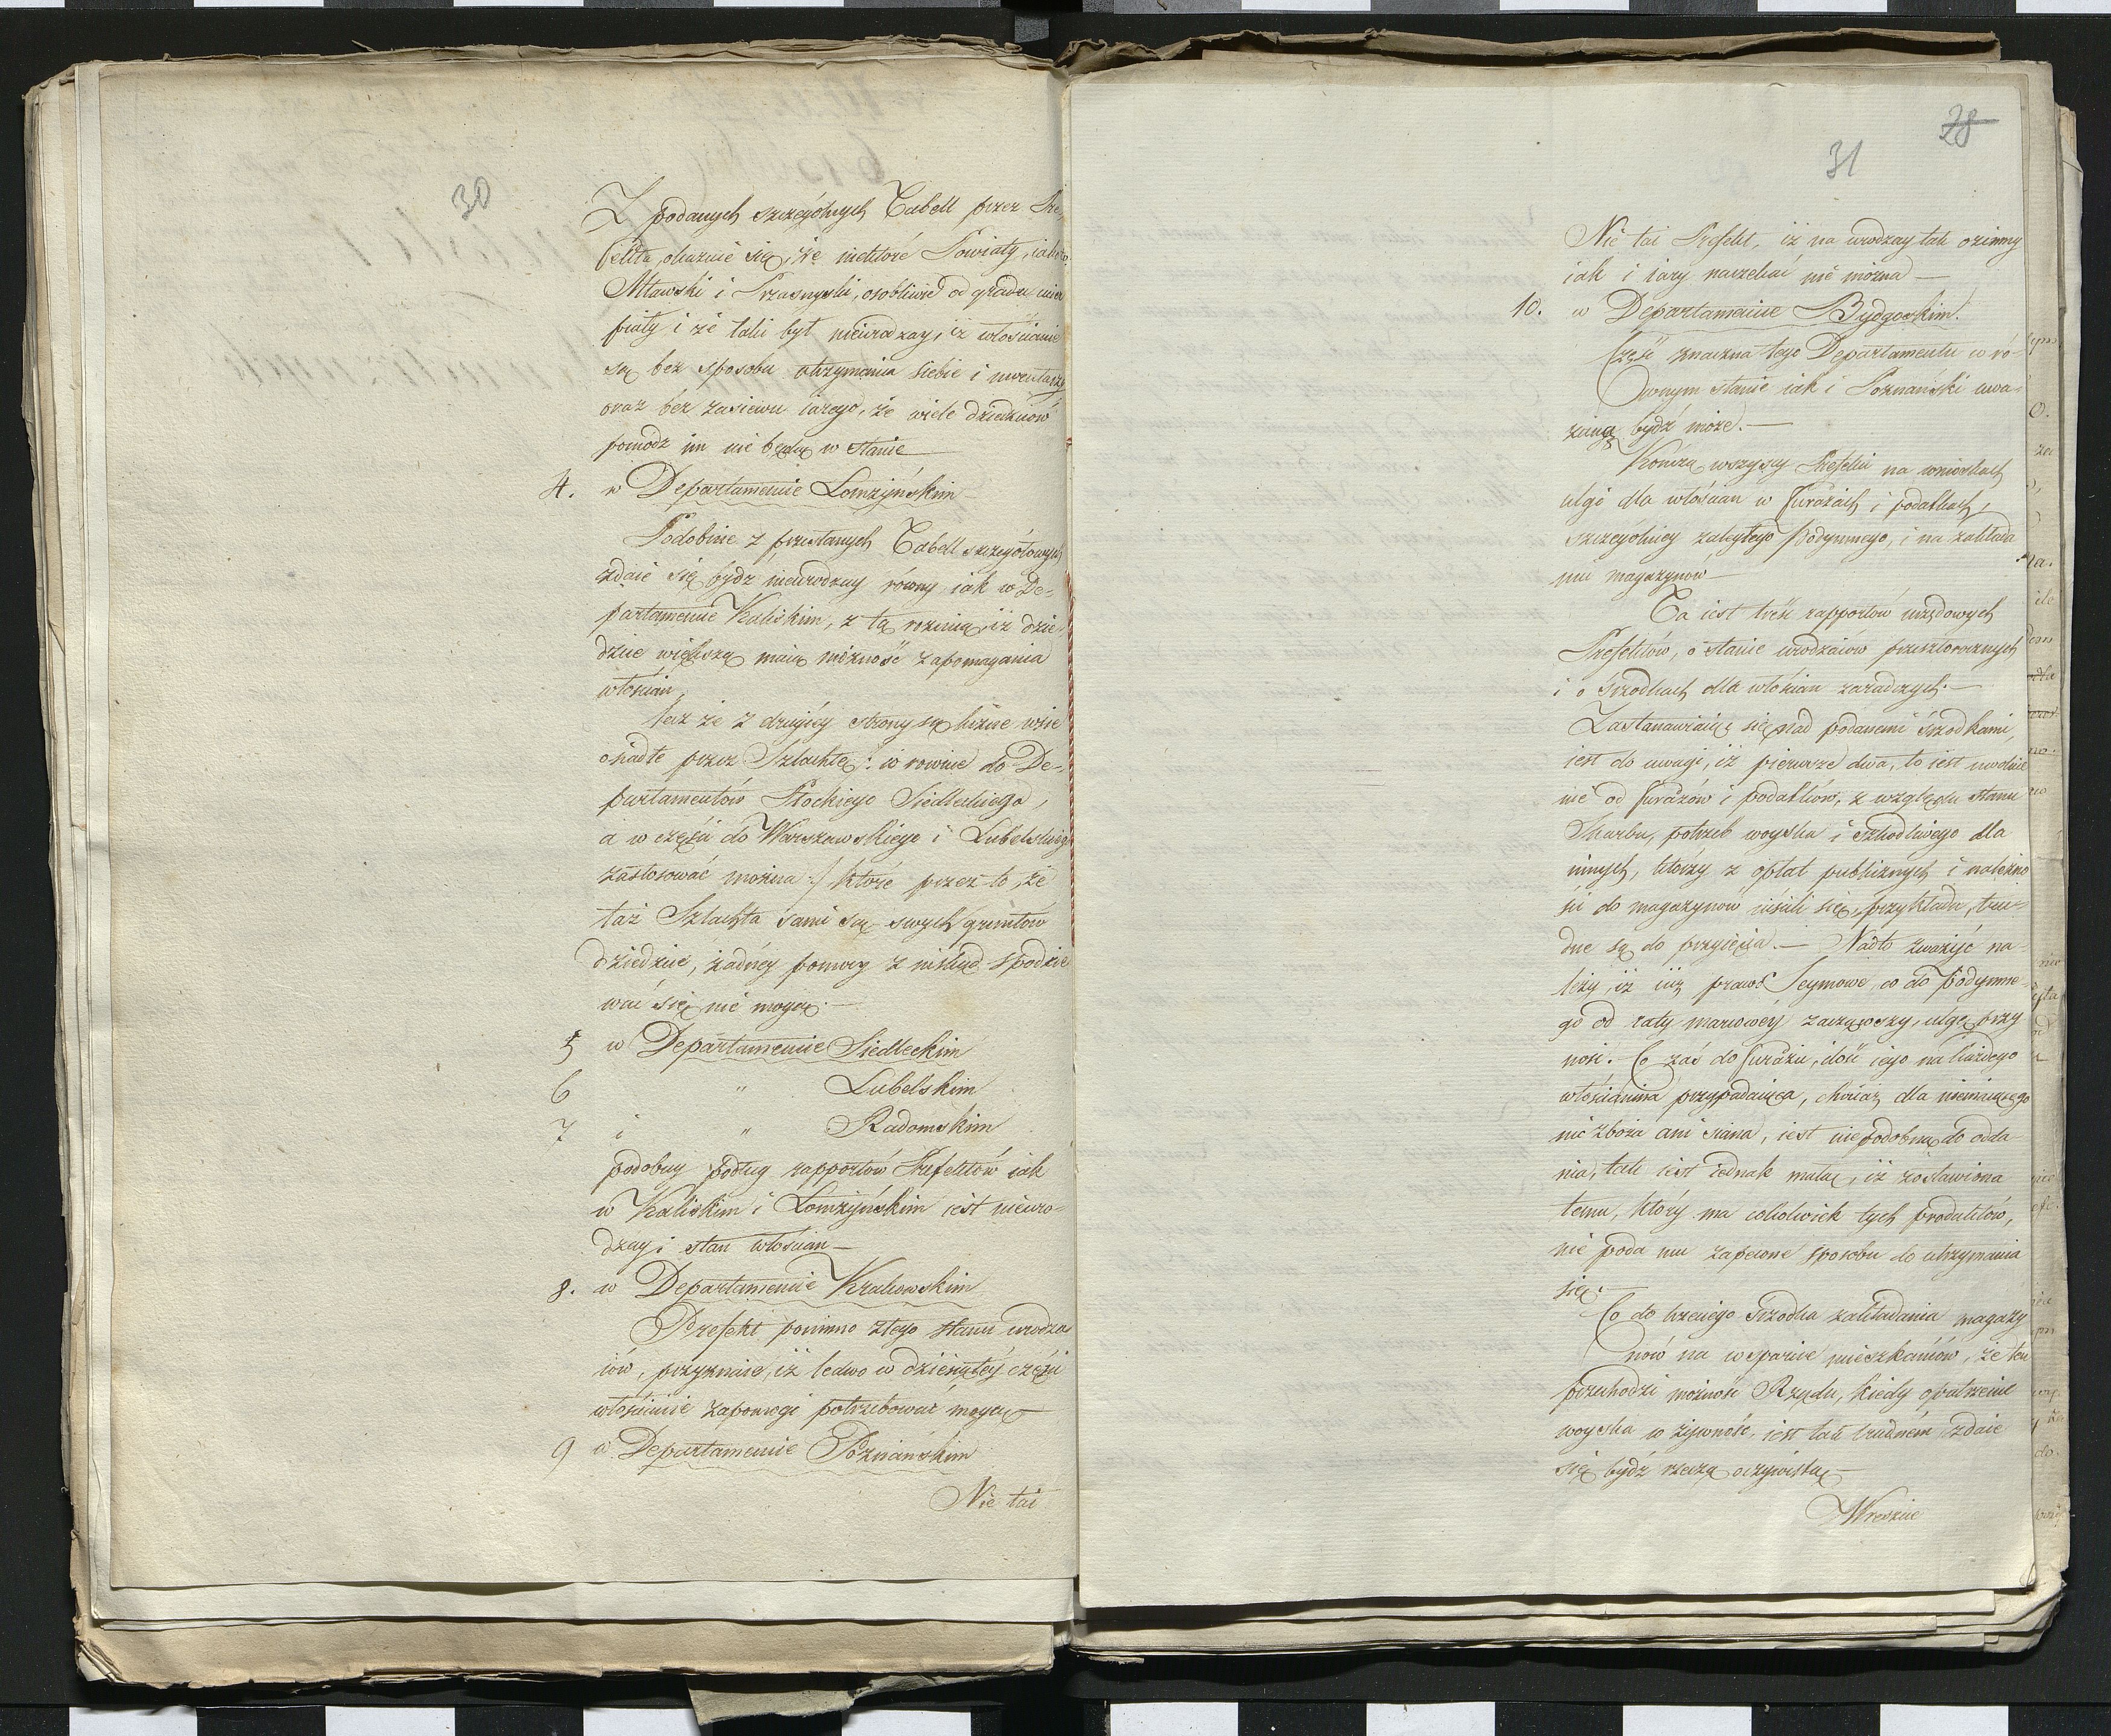 30
Z podanych szczególnych Tabell przez Pre-
fekta, okazuie się, że niektóre Powiaty, iako to
Mławski i Przasnyski, osobliwie od gradu ucier
piały i że taki był nieurodzay, iż włościanie
są bez sposobu utrzymania siebie i inwentarzy
oraz bez zasiewu iarego, że wiele dziedziców
pomódz im nie będą w stanie
4. w Departamencie Łomżyńskim
Podobnie z przesłanych Tabell szczegółowych
zdaie się bydź nieurodzay równy iak w De-
partamencie Kaliskim, z tą różnicą, iż dzie-
dzice większą maią możność zapomagania
włościan,
lecz że z drugiéy strony są liczne wsie
osiadłe przez Szlachtę /: co równie do De-
partamentów Płockiego Siedleckiego,
a w części do Warszawskiego i Lubelskiego
zastosować można :/ które przez to, że
taż Szlachta sami są swych gruntów
dziedzice, żadnéy pomocy z nikąd spodzie
wać się nie mogą.
5 w Departamencie Siedleckim
6 " Lubelskim
7 i " Radomskim
podobny podług rapportów Prefektów iak
w Kaliskim i Łomżyńskim iest nieuro-
dzay i stan włościan
8. w Departamencie Krakowskim
Prefekt pomimo złego stanu urodza
iów, przyznaie, iż ledwo w dziesiątéy części
włościanie zapomogi potrzebować mogą
9 w Departamencie Poznańskim
Nie tai
28
31
Nie tai Prefekt, iż na urodzay tak ozimy
iak i iary narzekać nie można
10. w Departamencie Bydgoskim.
Część znaczna tego Departamentu w ró-
wnym stanie iak i Poznański uwa-
żaną bydź może.
Kończą wszyscy Prefekci na wnioskach
ulgi dla włościan w furażach i podatkach,
szczególniey zaległego Podymnego, i na zakłada
niu magazynow
Ta iest treść rapportów urzędowych
Prefektów, o stanie urodzaiów przeszłorocznych
i o śrzodkach dla włościan zaradczych.
Zastanawiaiąc się nad podanemi śrzodkami,
iest do uwagi, iż pierwsze dwa, to iest uwolnie
nie od furażów i podatków, z względu stanu
Skarbu, potrzeb woyska i szkodliwego dla
innych, którzy z opłat publicznych i należno
ści do magazynów uiścili się, przykładu, tru-
dne są do przyięcia. Nadto zważyć na
leży, iż iuż prawo Seymowe, co do Podymne-
go od raty marcowéy zacząwszy, ulgę przy
nosi. Co zaś do furażu, ilość iego na każdego
włościanina przypadaiąca, chociaż dla niemaiącego
nic zboża ani siana, iest niepodobną do odda
nia, tak iest iednak małą, iż zostawiona
temu, który ma cokolwiek tych produktów,
nie poda mu zapewne sposobu do utrzymania
się.
Co do trzeciego śrzodka zakładania magazy
nów na wsparcie mieszkańców, że ten
przechodzi możność Rządu, kiedy opatrzenie
woyska w żywność, iest tak trudném, zdaie
się bydź rzeczą oczywistą
Wreszcie